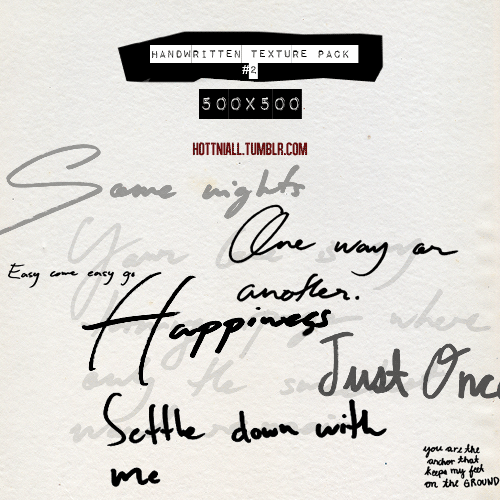 HANDWRITTEN TEXTURE PACK
#2
500X500
HOTTNIALL.TUMBLR.COM
Some nights
One way or
another.
Easy come easy go
Happiness
where
only the
Just Once
Settle down with
me
you are the
anchor that
keeps my feet
on the GROUND